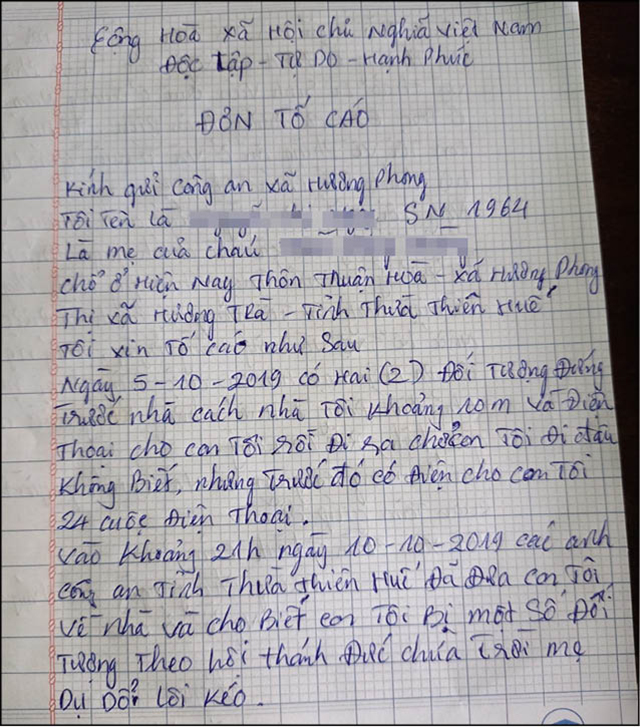 Cộng Hoà xã Hội chủ Nghĩa Việt Nam
Độc Lập - Tự Do - Hạnh Phúc
ĐƠN TỐ CÁO
Kính gửi Công an xã Hương Phong
Tôi Tên Là SN_ 1964
Là mẹ của cháu
chổ ở Hiện Nay Thôn Thuận Hoà - xã Hương Phong
Thị xã Hương Trà - Tỉnh Thừa Thiên Huế
Tôi xin Tố cáo như sau
Ngày 5-10-2019 có Hai (2) Đối Tượng Đứng
Trước nhà cách nhà Tôi khoảng 10m và Điện
Thoại cho con Tôi rồi Đi ra chở con Tôi đi đâu
không Biết, nhưng Trước đó có điện cho con Tôi
24 cuộc Điện Thoại.
vào khoảng 21h ngày 10-10-2019 các anh
công an Tỉnh Thừa Thiên Huế Đã Đưa con Tôi
về nhà và cho Biết con Tôi Bị một Số Đối
Tượng Theo hội thánh Đức chúa Trời mẹ
Dụ Dổ Lôi Kéo.